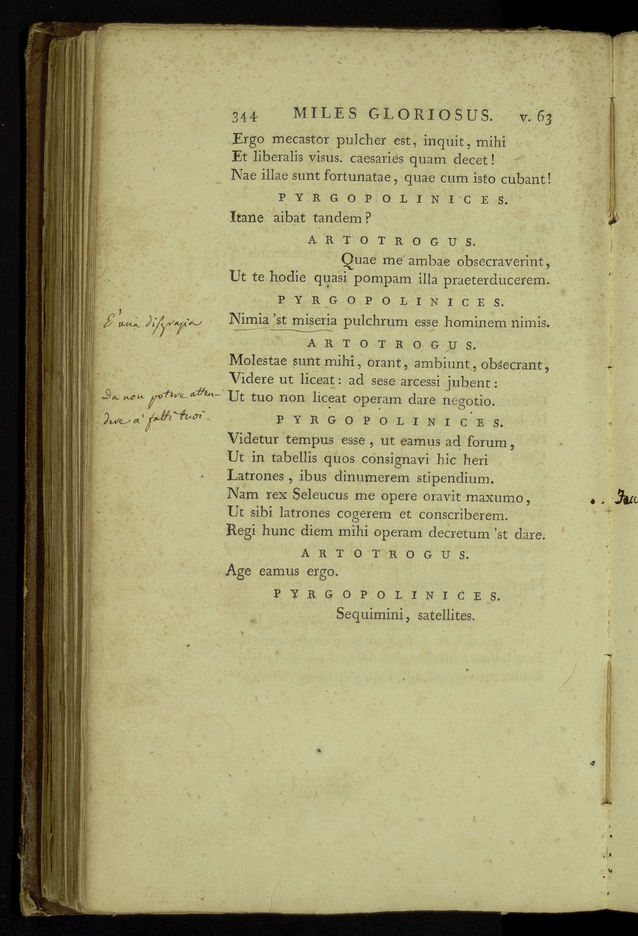 344 MILES GLORIOSUS. v. 63
Ergo mecastor pulcher est, inquit, mihi
Et liberalis visus. caesaries quam decet!
Nae illae sunt fortunatae, quae cum isto cubant!
PYRGOPOLINICES.
Itane aibat tandem?
ARTOTROGUS.
Quae me ambae obsecraverint,
Ut te hodie quasi pompam illa praeterducerem.
PYRGOPOLINICES.
E' una disgrazia
Nimia 'st miseria pulchrum esse hominem nimis.
ARTOTROGUS.
Molestae sunt mihi, orant, ambiunt, obsecrant,
Videre ut liceat: ad sese arcessi jubent:
Da non potere atten-
dere a' fatti tuoi.
Ut tuo non liceat operam dare negotio.
PYRGOPOLINICES.
Videtur tempus esse, ut eamus ad forum,
Ut in tabellis quos consignavi hic heri
Latrones, ibus dinumerem stipendium.
Nam rex Seleucus me opere oravit maxumo,
Ut sibi latrones cogerem et conscriberem.
Regi hunc diem mihi operam decretum 'st dare.
ARTOTROGUS.
Age eamus ergo.
PYRGOPOLINICES.
Sequimini, satellites.